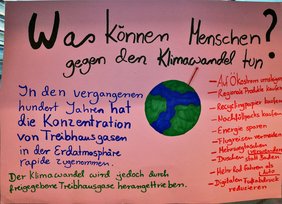 Was können Menschen?
gegen den Klimawandel tun
In den vergangenen
hundert Jahren hat
die Konzentration
von Treibhausgasen
in der Erdatmosphäre
rapide zugenommen.
Der Klimawandel wird jedoch durch
freigegebene Treibhausgase herangetrieben.
- Auf Ökostrom umsteigen
- Regionale Produkte kaufen
- Recyclingpapier kaufen
- Nachfüllpacks kaufen
- Energie sparen
- Flugreisen vermeiden
- Mehrwegtaschen verwenden
- Duschen statt Baden
- Mehr Rad fahren als Auto
- Digitalen Fußabdruck
reduzieren